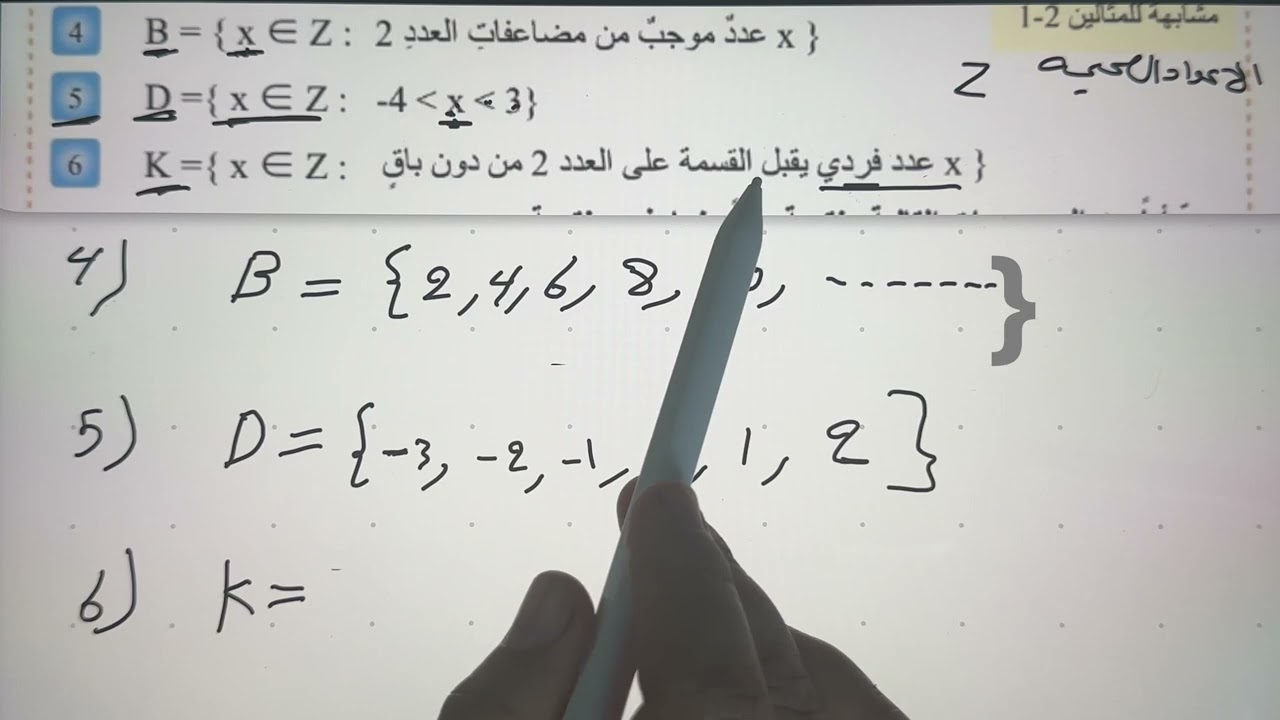 مشابهة للمثالين 1-2
4 B = { x ∈ Z : x عددٌ موجبٌ من مضاعفاتِ العددِ 2 }
الاعداد الصحيحه Z
5 D ={ x ∈ Z : -4 < x < 3}
6 K ={ x ∈ Z : x عدد فردي يقبل القسمة على العدد 2 من دون باقٍ }
4) B = {2, 4, 6, 8, , -------}
5) D = {-3, -2, -1, , 1, 2}
6) K =